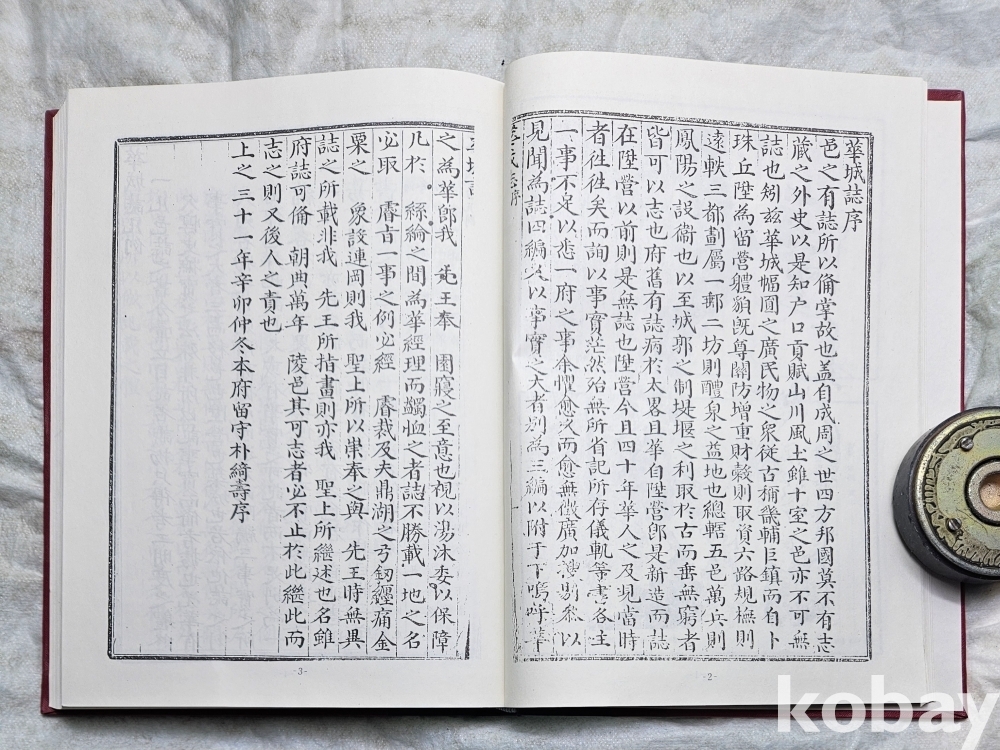 華城誌序
邑之有誌所以備掌故也盖自成周之世四方邦國莫不有志
藏之外史以是知户口貢賦山川風土雖十室之邑亦不可無
誌也矧玆華城幅圓之廣民物之衆從古稱畿輔巨鎮而自卜
珠丘陞為留營軆貌旣尊關防增重財糓則取資六路規橅則
遠軼三都劃属一郵二坊則醴泉之益地也緫轄五邑萬兵則
鳳陽之設衛也以至城郭之制堤堰之利取於古而垂無窮者
皆可以志也府舊有誌病於太畧且華自陞營卽是新造而誌
在陞營以前則是無誌也陞營今且四十年華人之及見當時
者徃徃矣而詢以事實茫然殆無所省記所存儀軌等書各主
一事不足以悉一府之事余懼愈久而愈無徵廣加溲剔叅以
見聞為誌四編又以事實之大者别為三編以附于下嗚呼華
華城誌序
之為華卽我 先王奉 園寢之至意也視以湯沐委以保障
凡於 絲綸之間為華經理而蠲恤之者誌不勝載一地之名
必取 睿旨一事之例必經 睿裁及夫鼎湖之弓劒纒痛金
粟之 象設連岡則我 聖上所以崇奉之與 先王時無異
誌之所載非我 先王所指畫則亦我 聖上所繼述也名雖
府誌可備 朝典萬年 陵邑其可志者必不止於此繼此而
志之則又後人之責也
上之三十一年辛卯仲冬本府留守朴綺壽序
-2-
-3-
kobay